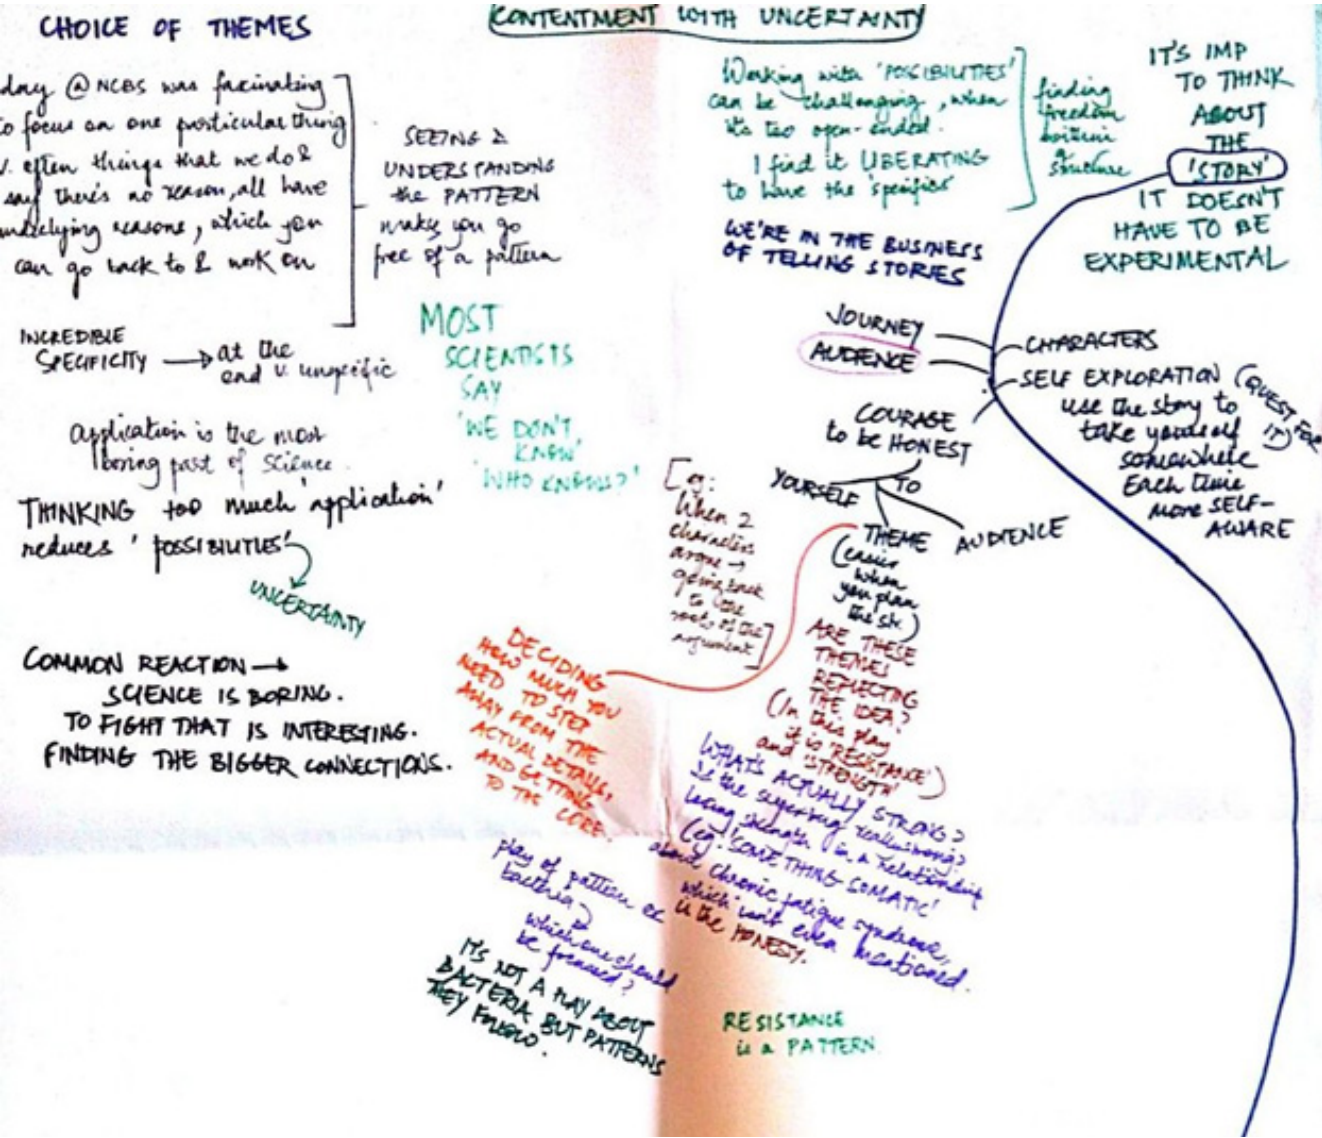 CHOICE OF THEMES
day @ NCBS was fascinating
to focus on one particular thing
v. often things that we do &
say there's no reason, all have
underlying reasons, which you
can go back to & work on
SEEING &
UNDERSTANDING
the PATTERN
makes you go
free of a pattern
INCREDIBLE
SPECIFICITY → at the
end v. unspecific
Application is the most
boring part of science.
THINKING too much 'application'
reduces 'POSSIBILITIES'
UNCERTAINTY
COMMON REACTION →
SCIENCE IS BORING.
TO FIGHT THAT IS INTERESTING.
FINDING THE BIGGER CONNECTIONS.
MOST
SCIENTISTS
SAY
'WE DON'T
KNOW'
'WHO KNOWS?'
CONTENTMENT WITH UNCERTAINTY
Working with 'POSSIBILITIES'
can be challenging, when
it's too open-ended.
I find it LIBERATING
to have the 'specifics'
finding
freedom
within
structure
WE'RE IN THE BUSINESS
OF TELLING STORIES
IT'S IMP
TO THINK
ABOUT
THE
'STORY'
IT DOESN'T
HAVE TO BE
EXPERIMENTAL
JOURNEY
AUDIENCE
CHARACTERS
SELF EXPLORATION (QUEST FOR IT)
use the story to
take yourself
somewhere
Each time
more SELF-
AWARE
COURAGE
to be HONEST
TO
YOURSELF
THEME
AUDIENCE
(easier
when
you plan
the str.)
[eg:
When 2
characters
argue →
going back
to the
roots of the
argument]
DECIDING
HOW MUCH YOU
NEED TO STEP
AWAY FROM THE
ACTUAL DETAILS,
AND GETTING
TO THE CORE.
ARE THESE
THEMES
REFLECTING
THE IDEA?
(In this play
it is 'RESISTANCE'
and 'STRENGTH')
WHAT'S ACTUALLY STRONG?
Is the surviving really strong?
losing strength in a relationship
(eg. 'SOMETHING SOMATIC'
about chronic fatigue syndrome,
which isn't even mentioned.
is the HONESTY.
play of pattern or
bacteria?
which one should
be focused?
IT'S NOT A PLAY ABOUT
BACTERIA BUT PATTERNS
THEY FOLLOW.
RESISTANCE
is a PATTERN